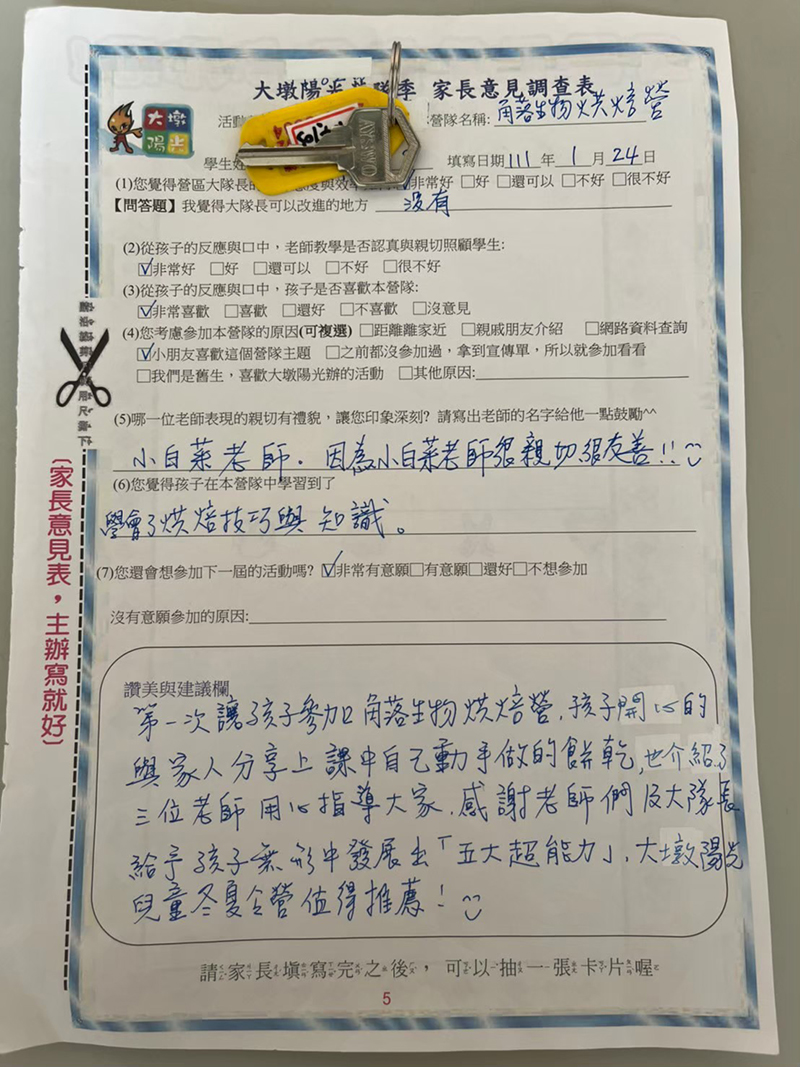 大墩陽光 家長意見調查表
大墩
陽光
活動 營隊名稱: 角落生物烘焙營
學生姓 填寫日期 111 年 1 月 24 日
(1)您覺得營區大隊長的 非常好 □好 □還可以 □不好 □很不好
【問答題】我覺得大隊長可以改進的地方 沒有
(2)從孩子的反應與口中，老師教學是否認真與親切照顧學生:
☑非常好 □好 □還可以 □不好 □很不好
(3)從孩子的反應與口中，孩子是否喜歡本營隊:
☑非常喜歡 □喜歡 □還好 □不喜歡 □沒意見
(4)您考慮參加本營隊的原因(可複選) □距離離家近 □親戚朋友介紹 □網路資料查詢
☑小朋友喜歡這個營隊主題 □之前都沒參加過，拿到宣傳單，所以就參加看看
□我們是舊生，喜歡大墩陽光辦的活動 □其他原因:
(5)哪一位老師表現的親切有禮貌，讓您印象深刻? 請寫出老師的名字給他一點鼓勵^^
小白菜老師. 因為小白菜老師很親切很友善!!
(6)您覺得孩子在本營隊中學習到了
學會了烘焙技巧與知識。
(7)您還會想參加下一屆的活動嗎? ☑非常有意願□有意願□還好□不想參加
沒有意願參加的原因:
讚美與建議欄
第一次讓孩子參加角落生物烘焙營, 孩子開心的
與家人分享上課中自己動手做的餅乾, 也介紹了
三位老師用心指導大家. 感謝老師們及大隊長
給予孩子無形中發展出「五大超能力」. 大墩陽光
兒童冬夏令營值得推薦!
請家長填寫完之後，可以抽一張卡片喔
5
〔家長意見表，主辦寫就好〕